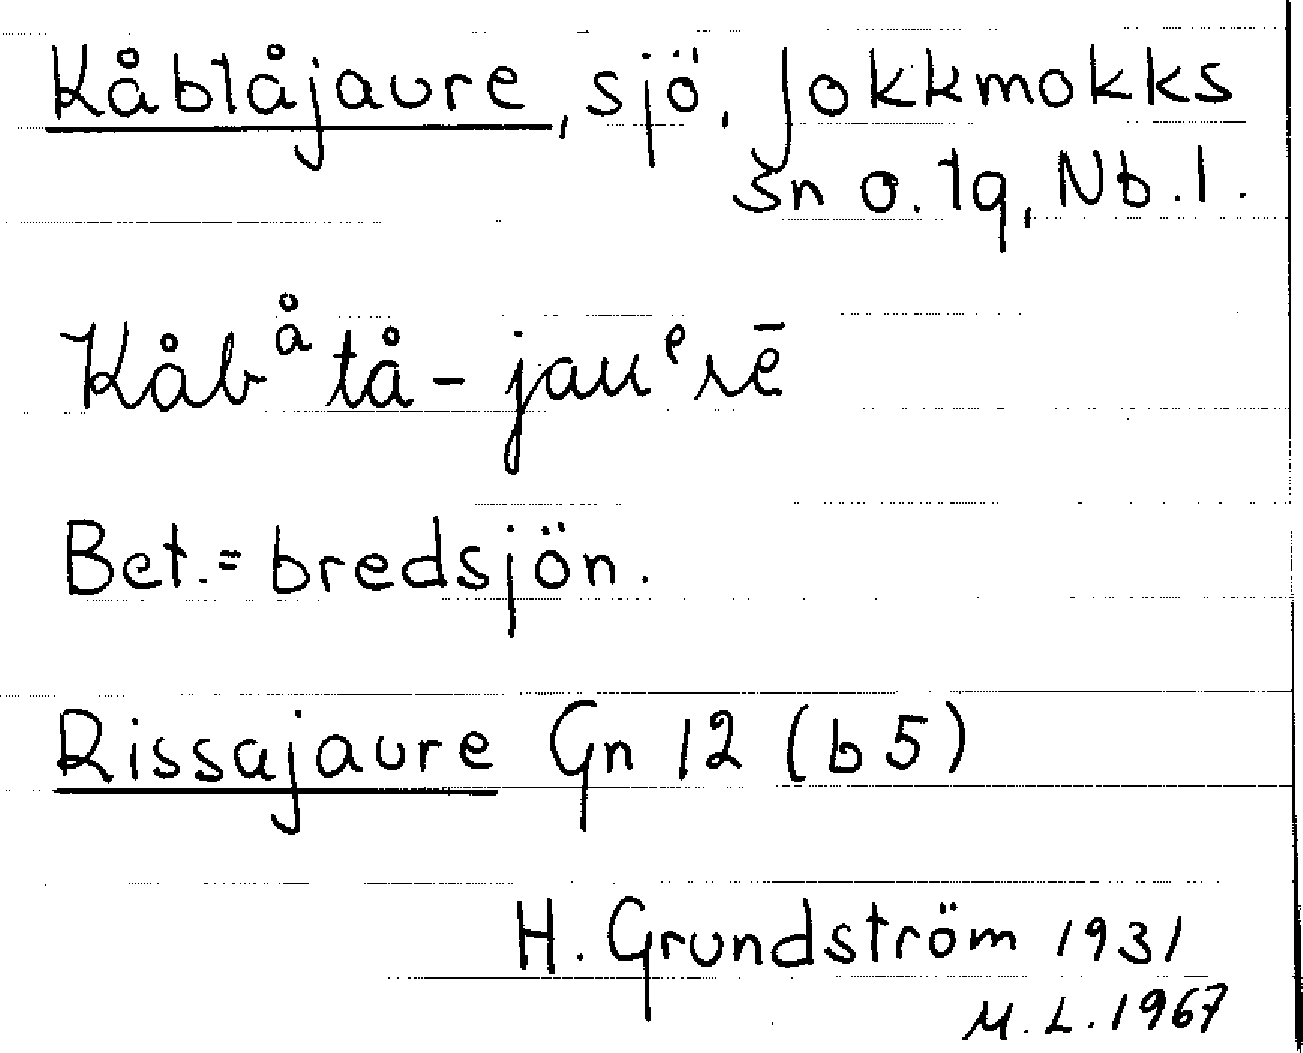 Kåblåjaure, sjö. Jokkmokks
sn o. lq, Nb.l.
Kåbᵃ̊tå-jauᵉrē
Bet.= bredsjön.
Rissajaure Gn 12 (b5)
H. Grundström 1931
M.L.1967